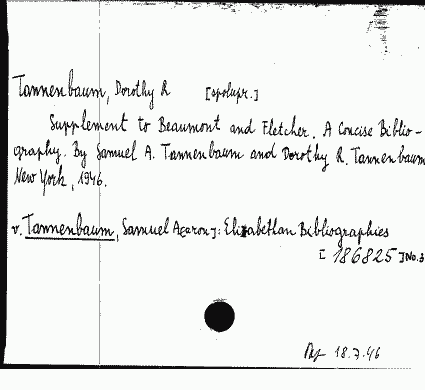 Tannenbaum, Dorothy R [spolupr.]
Supplement to Beaumont and Fletcher. A Concise Biblio-
graphy. By Samuel A. Tannenbaum and Dorothy R. Tannenbaum
New York, 1946.
v. Tannenbaum, Samuel A[aron]: Elizabethan Bibliographies
[186825] No. 3
18.7.46